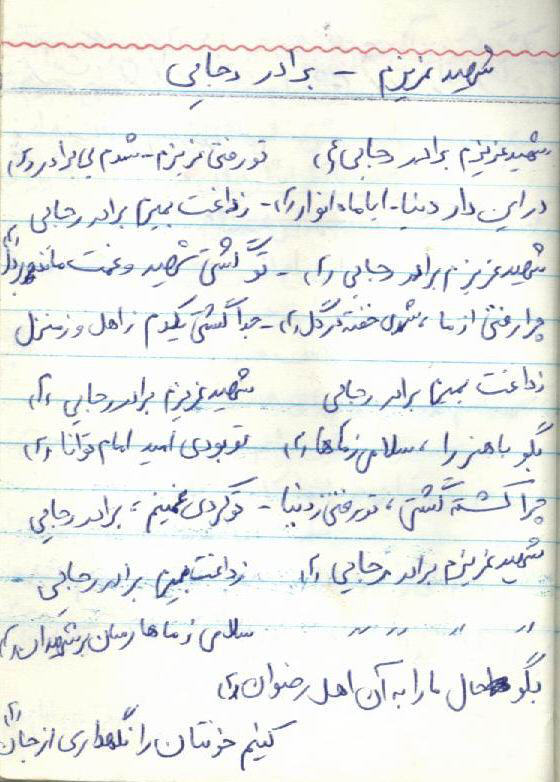 شهید عزیزم - برادر رجایی
شهید عزیزم برادر رجایی (۲) تو رفتی عزیزم - شدم بی برادر (۲)
در این دار دنیا - ایا ماه انوار (۲) - ز داغت بمیرم برادر رجایی
شهید عزیزم برادر رجایی (۲) - تو گشتی شهید و غمت مانده بر دل (۲)
چرا رفتی از ما، شدی خفته در گل (۲) - جدا گشتی یکدم ز اهل و ز منزل
ز داغت بمیرم برادر رجایی شهید عزیزم برادر رجایی (۲)
بگو باهنر را، سلامی ز ماها (۲) تو بودی امید امام توانا (۲)
چرا کشته گشتی، تو رفتی ز دنیا - تو کردی غمینم، برادر رجایی
شهید عزیزم برادر رجایی (۲) ز داغت بمیرم برادر رجایی
〃 〃 〃 〃 سلامی ز ماها رسان بر شهیدان (۲)
بگو حال ما را به آن اهل رضوان (۲)
کنیم خونتان را نگهداری از جان (۲)